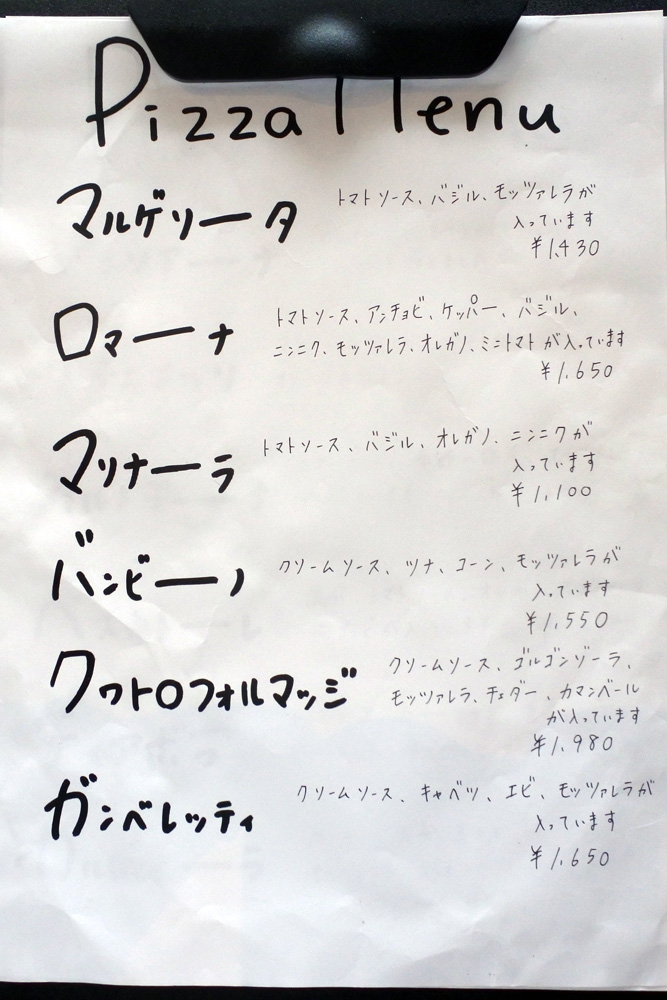 Pizza Menu
マルゲリータ
トマトソース、バジル、モッツァレラが
入っています
¥1,430
ロマーナ
トマトソース、アンチョビ、ケッパー、バジル、
ニンニク、モッツァレラ、オレガノ、ミニトマトが入っています
¥1,650
マリナーラ
トマトソース、バジル、オレガノ、ニンニクが
入っています
¥1,100
バンビーノ
クリームソース、ツナ、コーン、モッツァレラが
入っています
¥1,550
クワトロフォルマッジ
クリームソース、ゴルゴンゾーラ、
モッツァレラ、チェダー、カマンベール
が入っています
¥1,980
ガンベレッティ
クリームソース、キャベツ、エビ、モッツァレラが
入っています
¥1,650